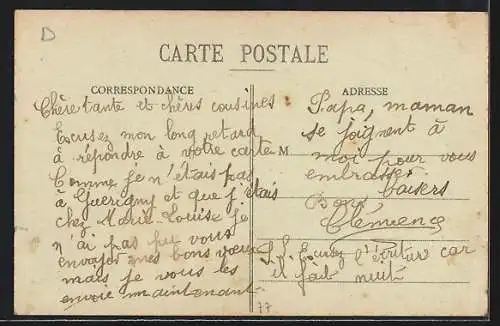 D
CARTE POSTALE
CORRESPONDANCE
Chère tante et chères cousines
Excusez mon long retard
à répondre à votre carte
Comme je n'étais pas
à Guérigny et que j'étais
chez Marie-Louise je
n'ai pas pu vous
envoyer mes bons vœux
mais je vous les
envoie maintenant
77
ADRESSE
Papa, maman
se joignent à
M
moi pour vous
embrasser
Bons baisers
Clémence
Excusez l'écriture car
il fait nuit